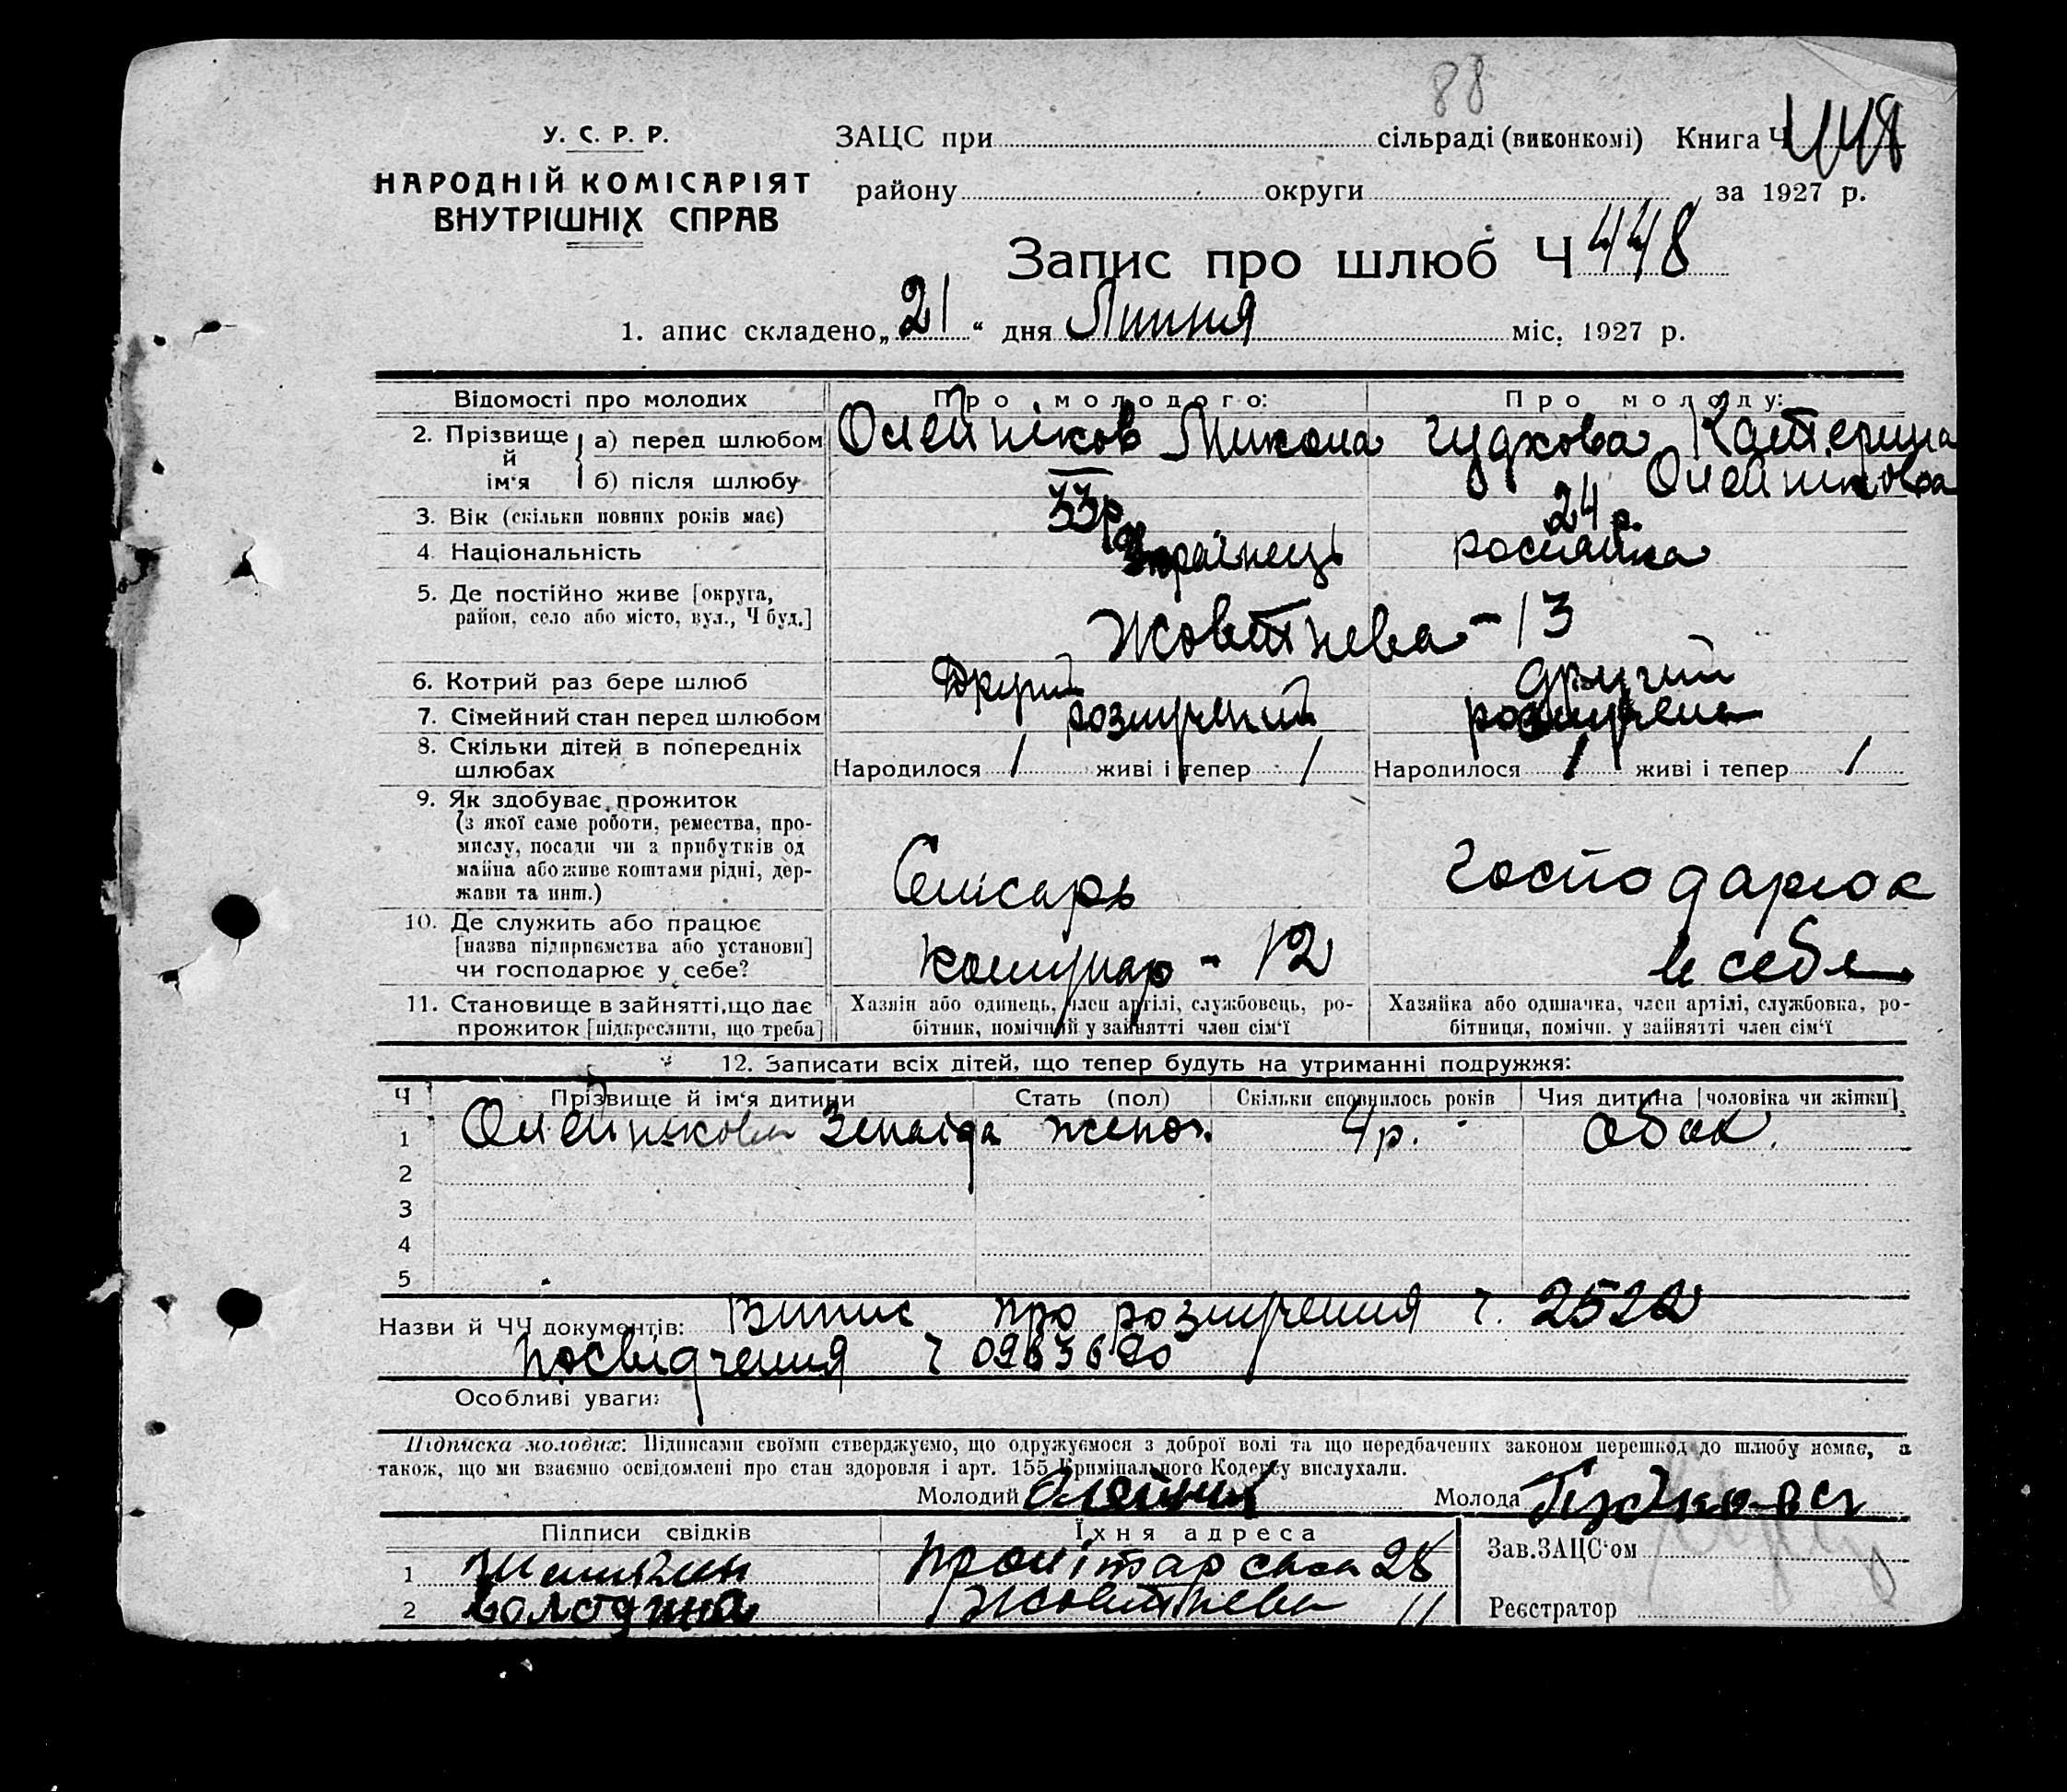 88
У. С. Р. Р.
НАРОДНІЙ КОМІСАРІЯТ
ВНУТРІШНІХ СПРАВ
ЗАЦС при сільраді (виконкомі) Книга Ч 448
району округи за 1927 р.
Запис про шлюб Ч 448
1. апис складено „21“ дня Липня міс. 1927 р.
Відомості про молодих Про молодого: Про молоду:
2. Прізвище й ім'я а) перед шлюбом Олейніков Микола Гудкова Катерина
б) після шлюбу — Олейнікова
3. Вік (скільки повних років має) 33 р. 24 р.
4. Національність Українець росіянка
5. Де постійно живе [округа,
район, село або місто, вул., Ч буд.] Жовтнева - 13
6. Котрий раз бере шлюб Другий другий
7. Сімейний стан перед шлюбом розлучений розлучена
8. Скільки дітей в попередніх
шлюбах Народилося 1 живі і тепер 1 Народилося 1 живі і тепер 1
9. Як здобуває прожиток
(з якої саме роботи, ремества, про-
мислу, посади чи з прибутків од
майна або живе коштами рідні, дер-
жави та инш.) Слюсарь господарює
10. Де служить або працює
[назва підприємства або установи]
чи господарює у себе? Комунар - 12 в себе
11. Становище в зайнятті, що дає
прожиток [підкреслити, що треба]
Хазяін або одинець, член артілі, службовець, ро-
бітник, помічний у зайнятті член сім'ї
Хазяйка або одиначка, член артілі, службовка, ро-
бітниця, помічн. у зайнятті член сім'ї
12. Записати всіх дітей, що тепер будуть на утриманні подружжя:
Ч Прізвище й ім'я дитини Стать (пол) Скільки сповнилось років Чия дитина [чоловіка чи жінки]
1 Олейнікова Зенаіда женоч. 4 р.
2
3
4
5
Назви й ЧЧ документів: Випис про розлучення ч. 2522
Посвідчення ч
Особливі уваги:
Підписка молодих: Підписами своїми стверджуємо, що одружуємося з доброї волі та що передбачених законом перешкод до шлюбу немає, а
також, що ми взаємно освідомлені про стан здоровля і арт. 155 Кримінального Кодексу вислухали.
Молодий Олейник Молода Гудкова
Підписи свідків Їхня адреса
Зав. ЗАЦС'ом
1 Пролітарська 28
2 Володина Жовтнева 11
Реєстратор